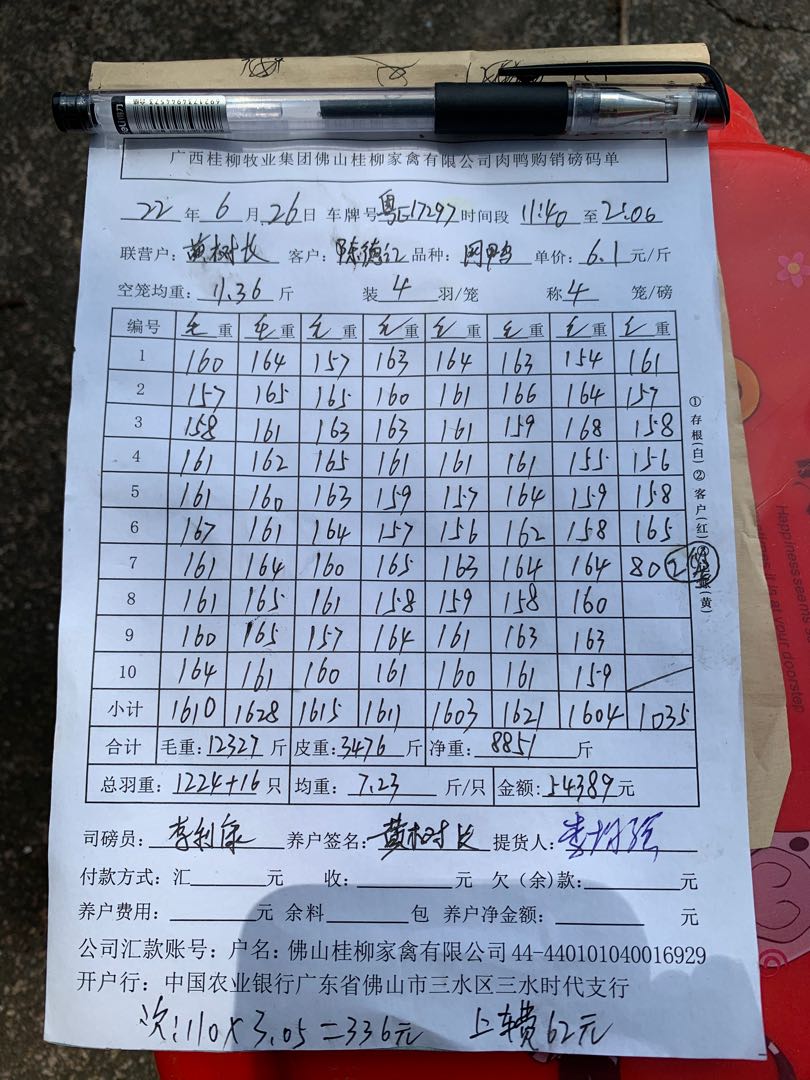 广西桂柳牧业集团佛山桂柳家禽有限公司肉鸭购销磅码单
22年6月26日 车牌号粤E17297时间段11:40至21:06
联营户：黄树长 客户：陈德江 品种：网鸭 单价：6.1元/斤
空笼均重：11.36斤 装4羽/笼 称4笼/磅
编号 毛重 毛重 毛重 毛重 毛重 毛重 毛重 毛重
1 160 164 157 163 164 163 154 161
2 157 165 165 160 161 166 164 157
3 158 161 163 163 161 159 168 158
4 161 162 165 161 161 161 155 156
5 161 160 163 159 157 164 159 158
6 167 161 164 157 156 162 158 165
7 161 164 160 165 163 164 164 80
8 161 165 161 158 159 158 160
9 160 165 157 164 161 163 163
10 164 161 160 161 160 161 159
小计 1610 1628 1615 1611 1603 1621 1604 1035
合计 毛重：12327斤 皮重：3476斤 净重：8851斤
总羽重：1224+16只 均重：7.23斤/只 金额：54389元
司磅员：李利康 养户签名：黄树长 提货人：
付款方式：汇 元 收： 元 欠（余）款： 元
养户费用： 元 余料 包 养户净金额： 元
公司汇款账号：户名：佛山桂柳家禽有限公司44-440101040016929
开户行：中国农业银行广东省佛山市三水区三水时代支行
次：110×3.05=336元 上车费62元
①存根（白）②客户（红）
（黄）
6921734944573
deli 得力
Happiness seems
at your doorstep